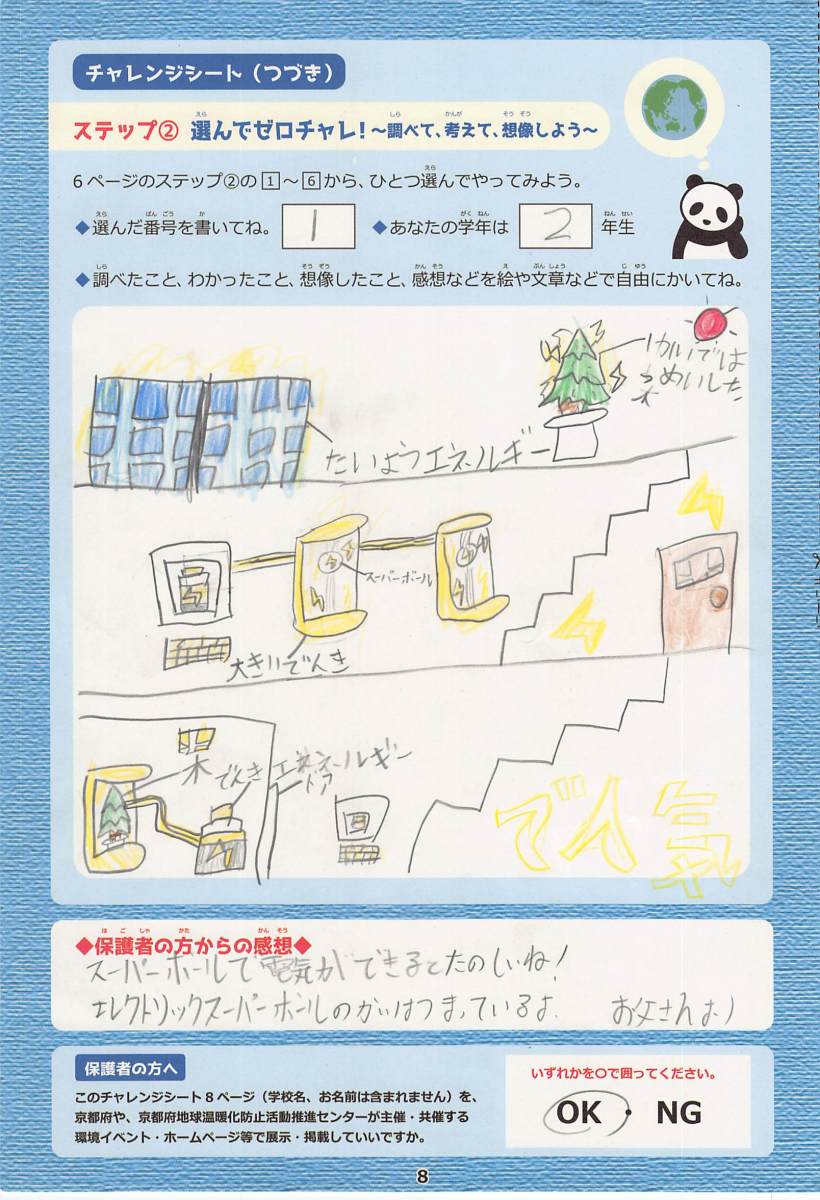 チャレンジシート（つづき）
ステップ② 選んでゼロチャレ！～調べて、考えて、想像しよう～
6ページのステップ②の1～6から、ひとつ選んでやってみよう。
◆選んだ番号を書いてね。 1 ◆あなたの学年は 2 年生
◆調べたこと、わかったこと、想像したこと、感想などを絵や文章などで自由にかいてね。
たいようエネルギー
スーパーボール
大きいでんき
木
でんき エネルギー
ドア
でん気
◆保護者の方からの感想◆
スーパーボールで電気ができるとたのしいね！
エレクトリックスーパーボールのかいはつまっているよ． お父さんより
保護者の方へ
このチャレンジシート8ページ（学校名、お名前は含まれません）を、
京都府や、京都府地球温暖化防止活動推進センターが主催・共催する
環境イベント・ホームページ等で展示・掲載していいですか。
いずれかを○で囲ってください。
OK ・ NG
8